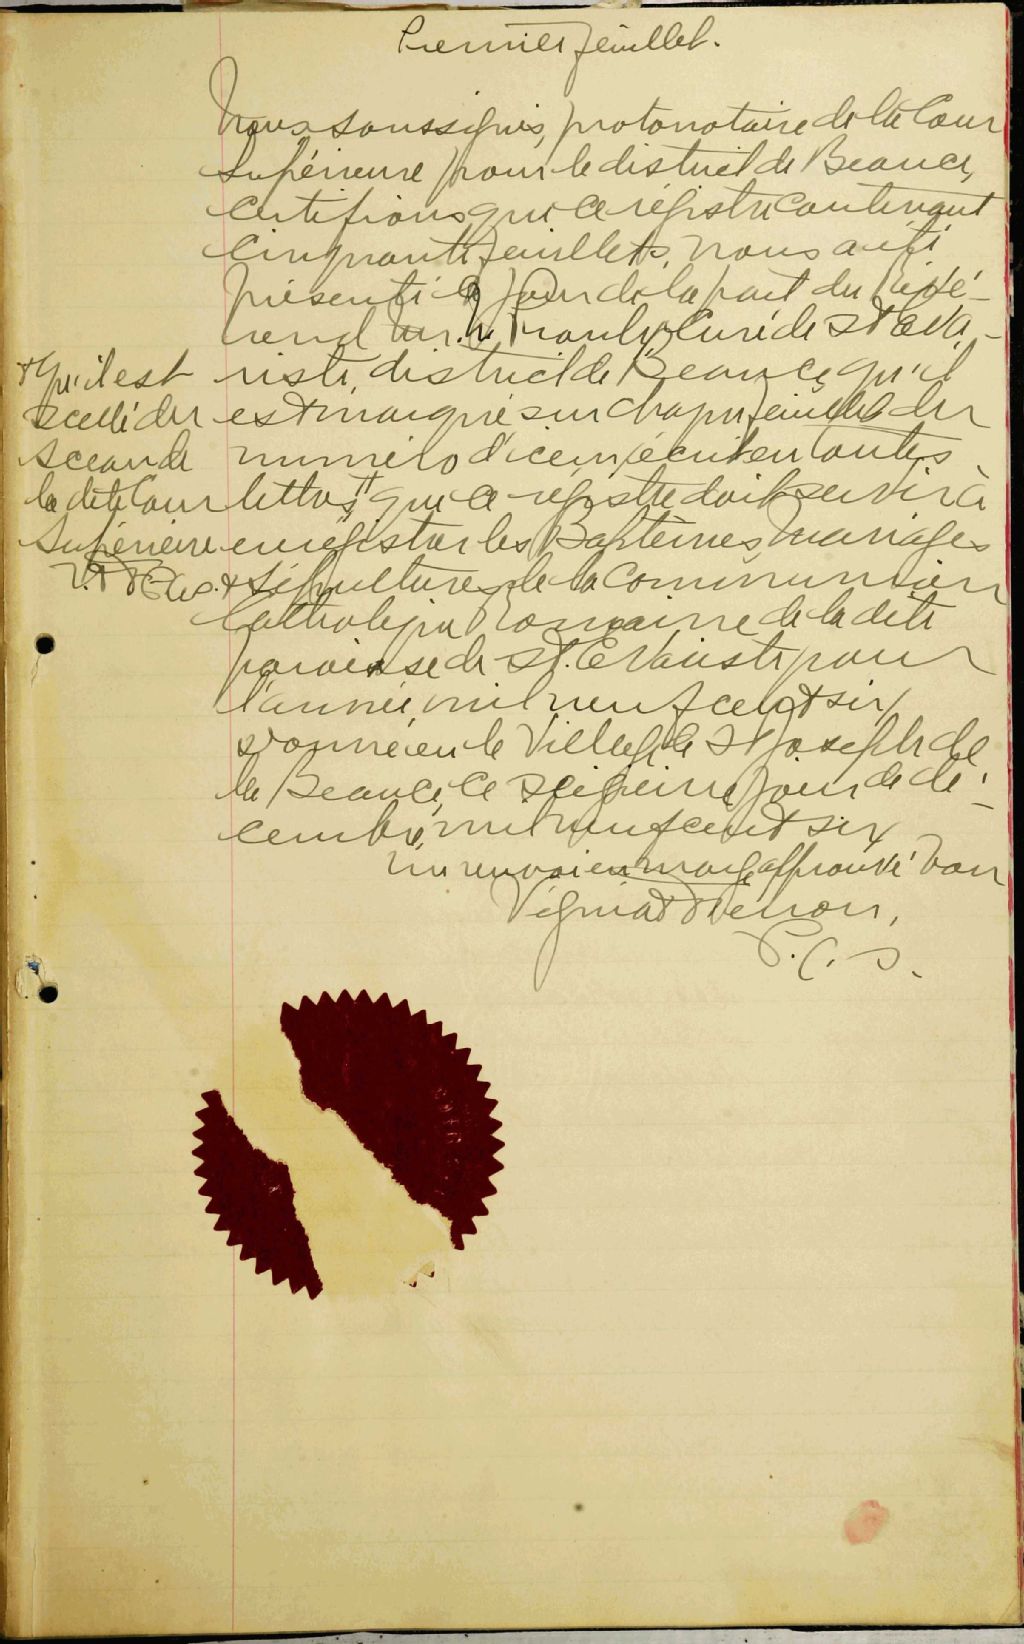 Premier feuillet.
Nous soussignés, protonotaire de la Cour
Supérieure pour le district de Beauce,
certifions que ce régistre contenant
cinquante feuillets, nous a été
présenté ce jour de la part du Révé-
rend Mr. Proulx Curé de St Eva-
riste, district de Beauce, qu'il
est marqué sur chaque feuillet du
numéro d'icelui écrit en toutes
lettres, que ce régistre doit servir à
enrégistrer les Baptêmes, mariages
& Sépultures de la Communion
Catholique Romaine de la dite
paroisse de St. Evariste pour
l'année mil neuf cent six
Donné en le Village de St Joseph de
la Beauce, ce jour de dé-
cembre mil neuf cent six
un renvoi en marge approuvé bon
Vézina &
P. C. S.
+ qu'il est
scellé du
sceau de
la dite Cour
Supérieure
V. &